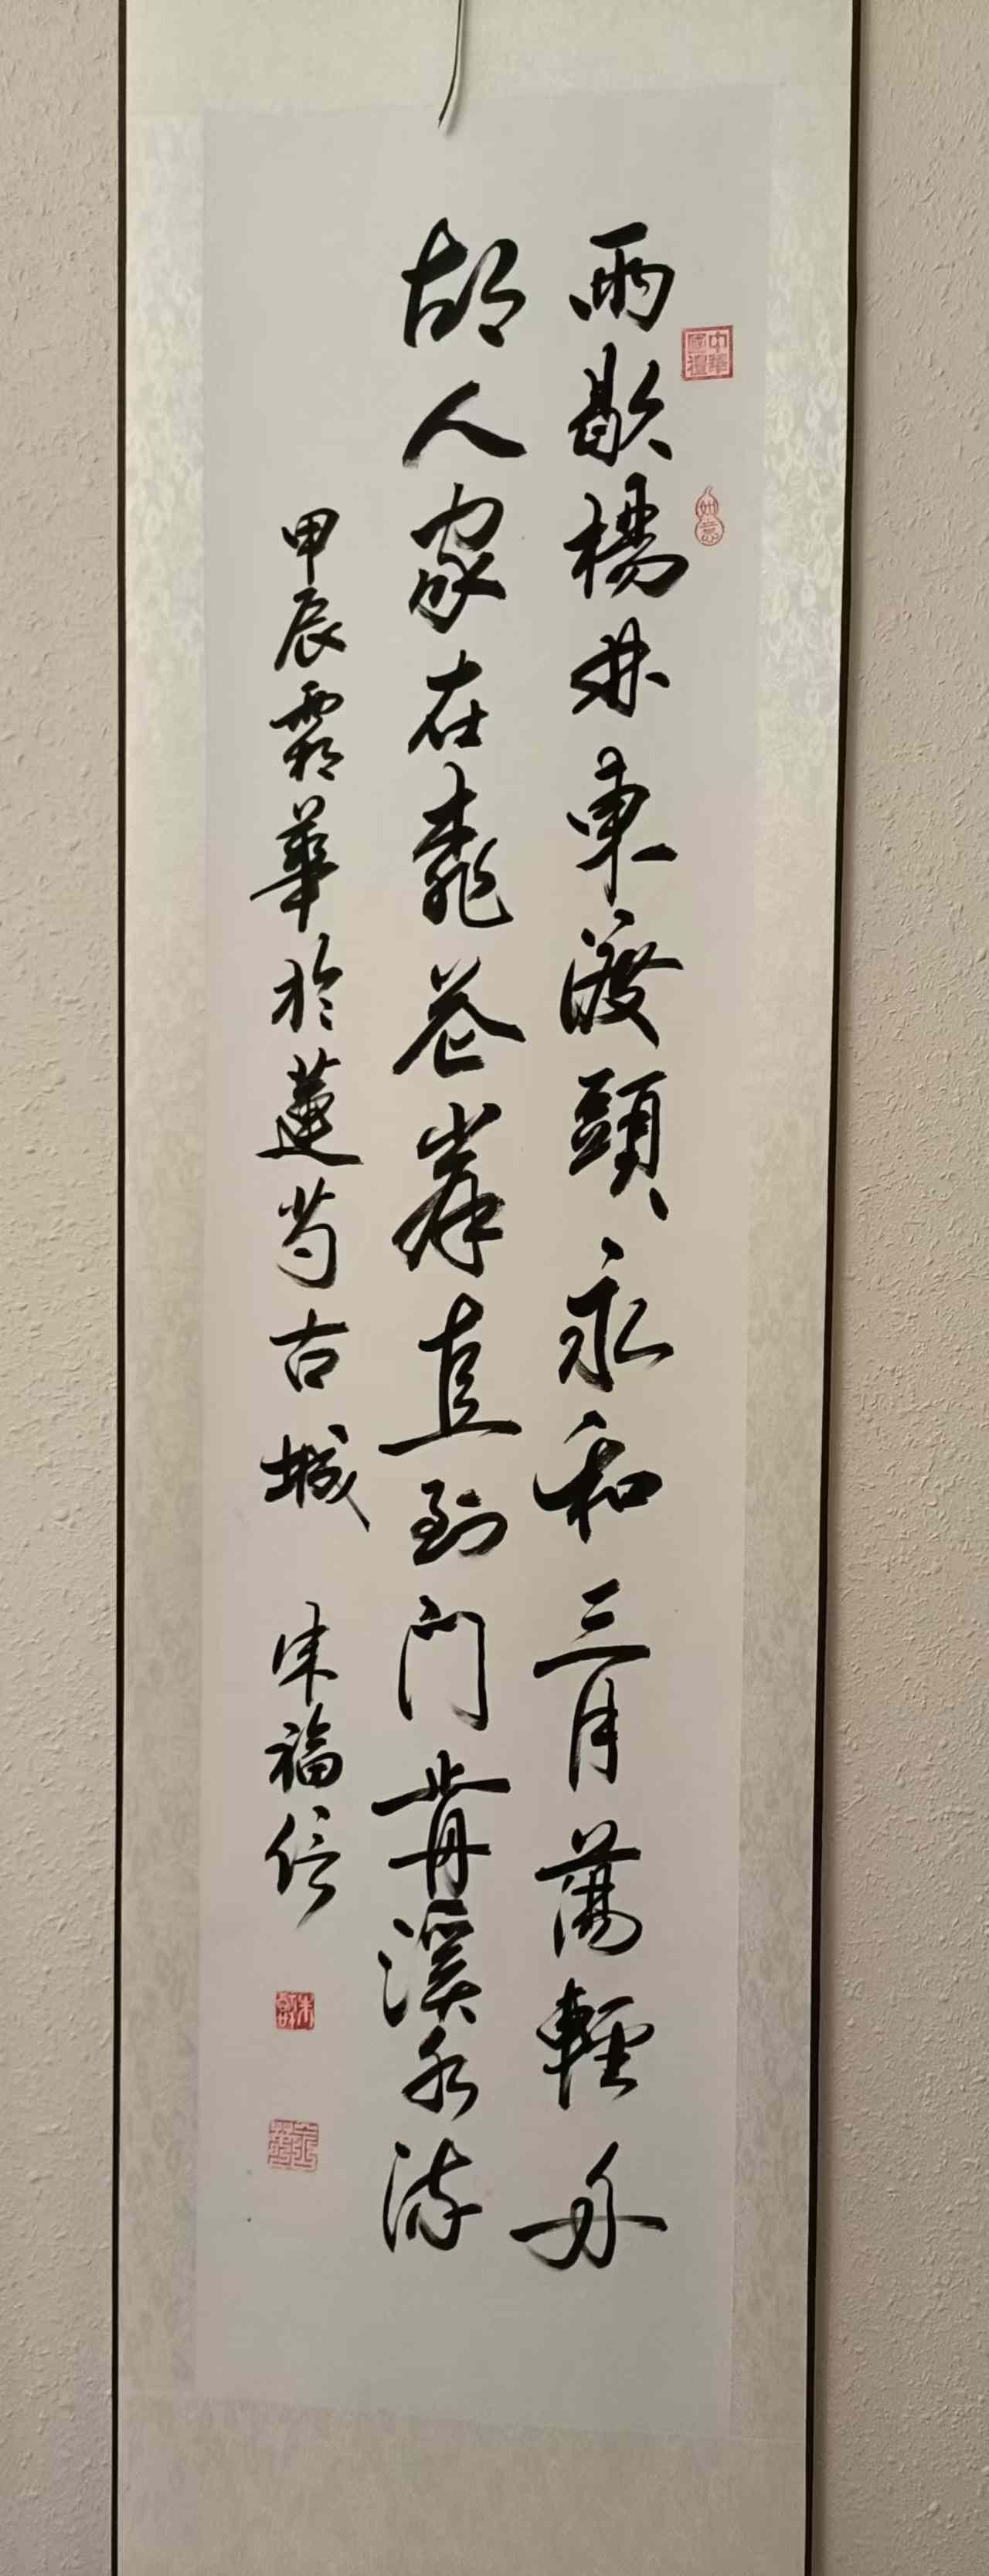 雨歇楊林東渡頭永和三月蕩輕舟
故人家在桃花岸直到門前溪水流
甲辰霜華於蓮芍古城 朱福信